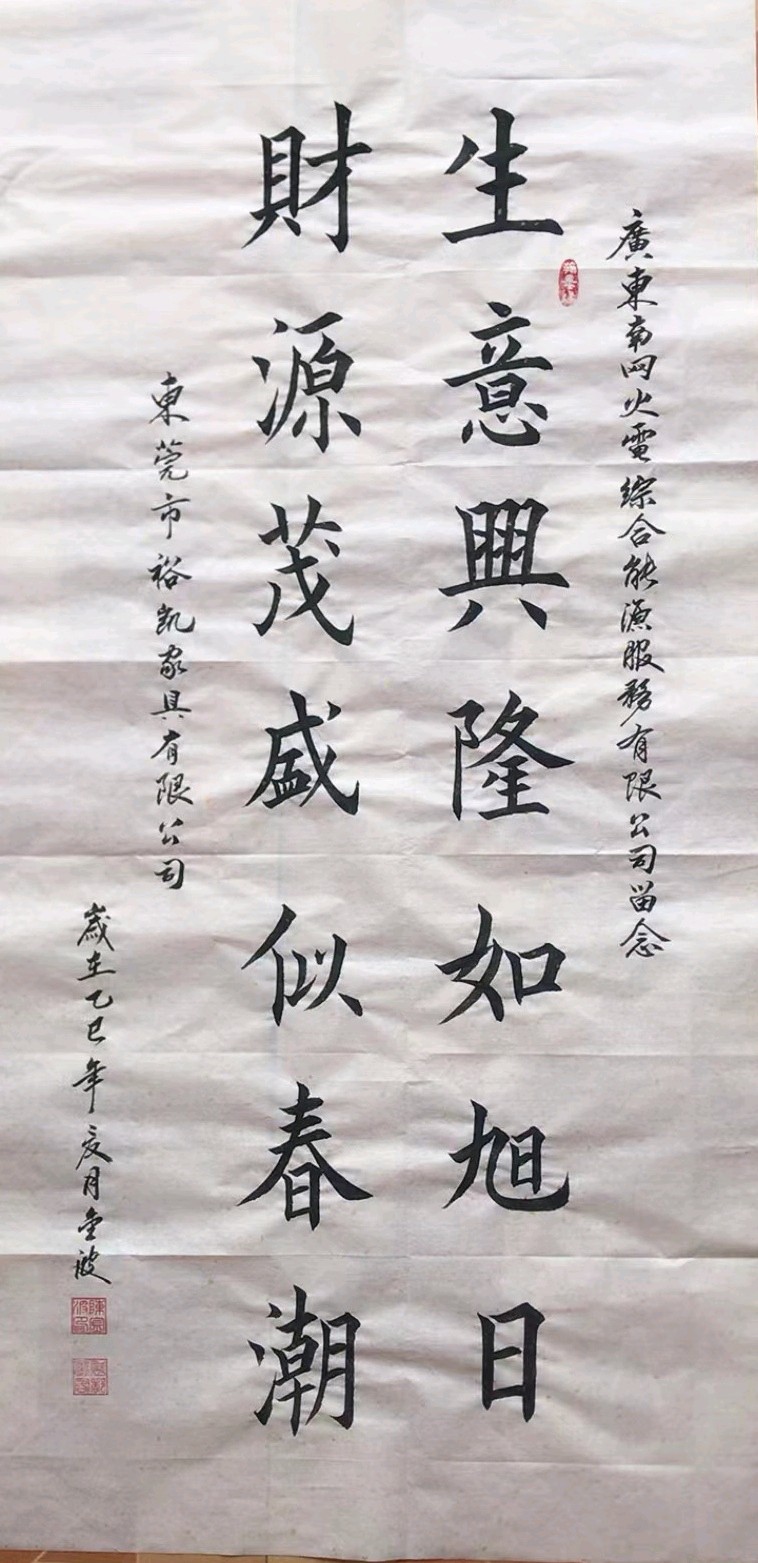 廣東南网火電綜合能源服務有限公司留念
生意興隆如旭日
財源茂盛似春潮
東莞市裕凱家具有限公司
歲在乙巳年夏月金波